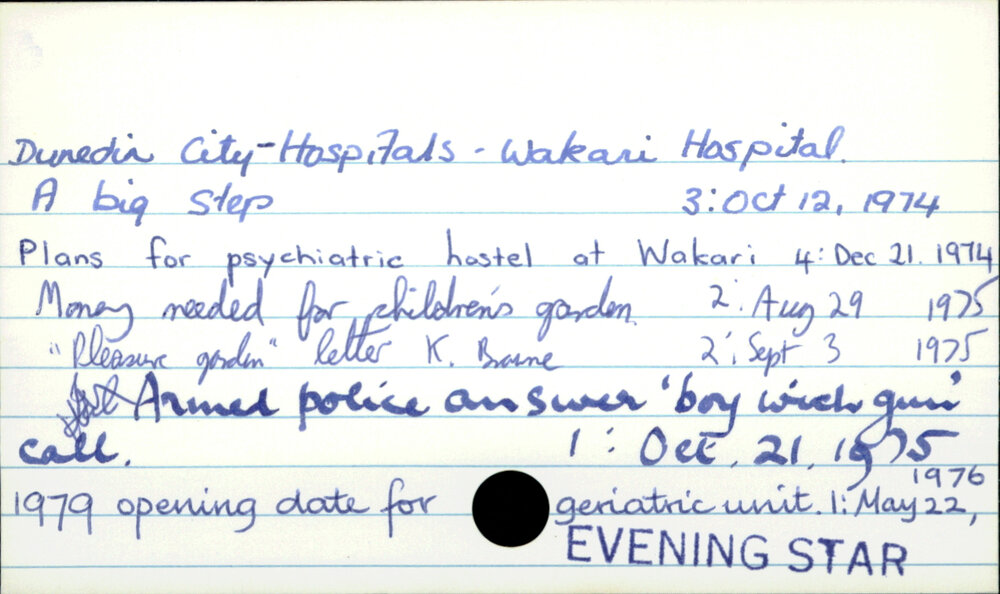 Dunedin City-Hospitals - Wakari Hospital.
A big step 3: Oct 12, 1974
Plans for psychiatric hostel at Wakari 4: Dec 21. 1974
Money needed for children's garden. 2: Aug 29 1975
"Pleasure garden" letter K. 2: Sept 3 1975
Armed police answer 'boy with gun'
call. 1: Oct. 21, 1975
1979 opening date for geriatric unit. 1: May 22, 1976
EVENING STAR